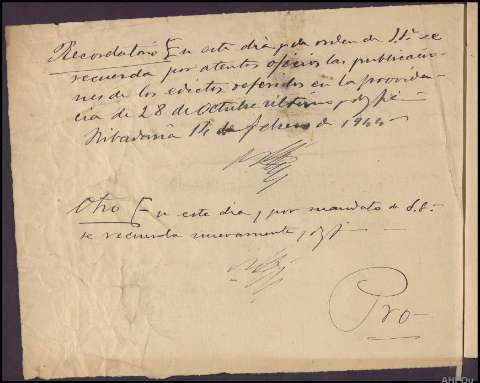 Recordatorio En este dia y de orden de S.S.ª se
recuerda por atentos oficios las publicacio-
nes de los edictos referidos en la providen-
cia de 28 de Octubre ultimo, doy fe
Ribadavia 14 de febrero de 1944
Otro En este dia, por mandato de S.S.ª
se recuerda nuevamente, doy fe
Pro-
AHPOu